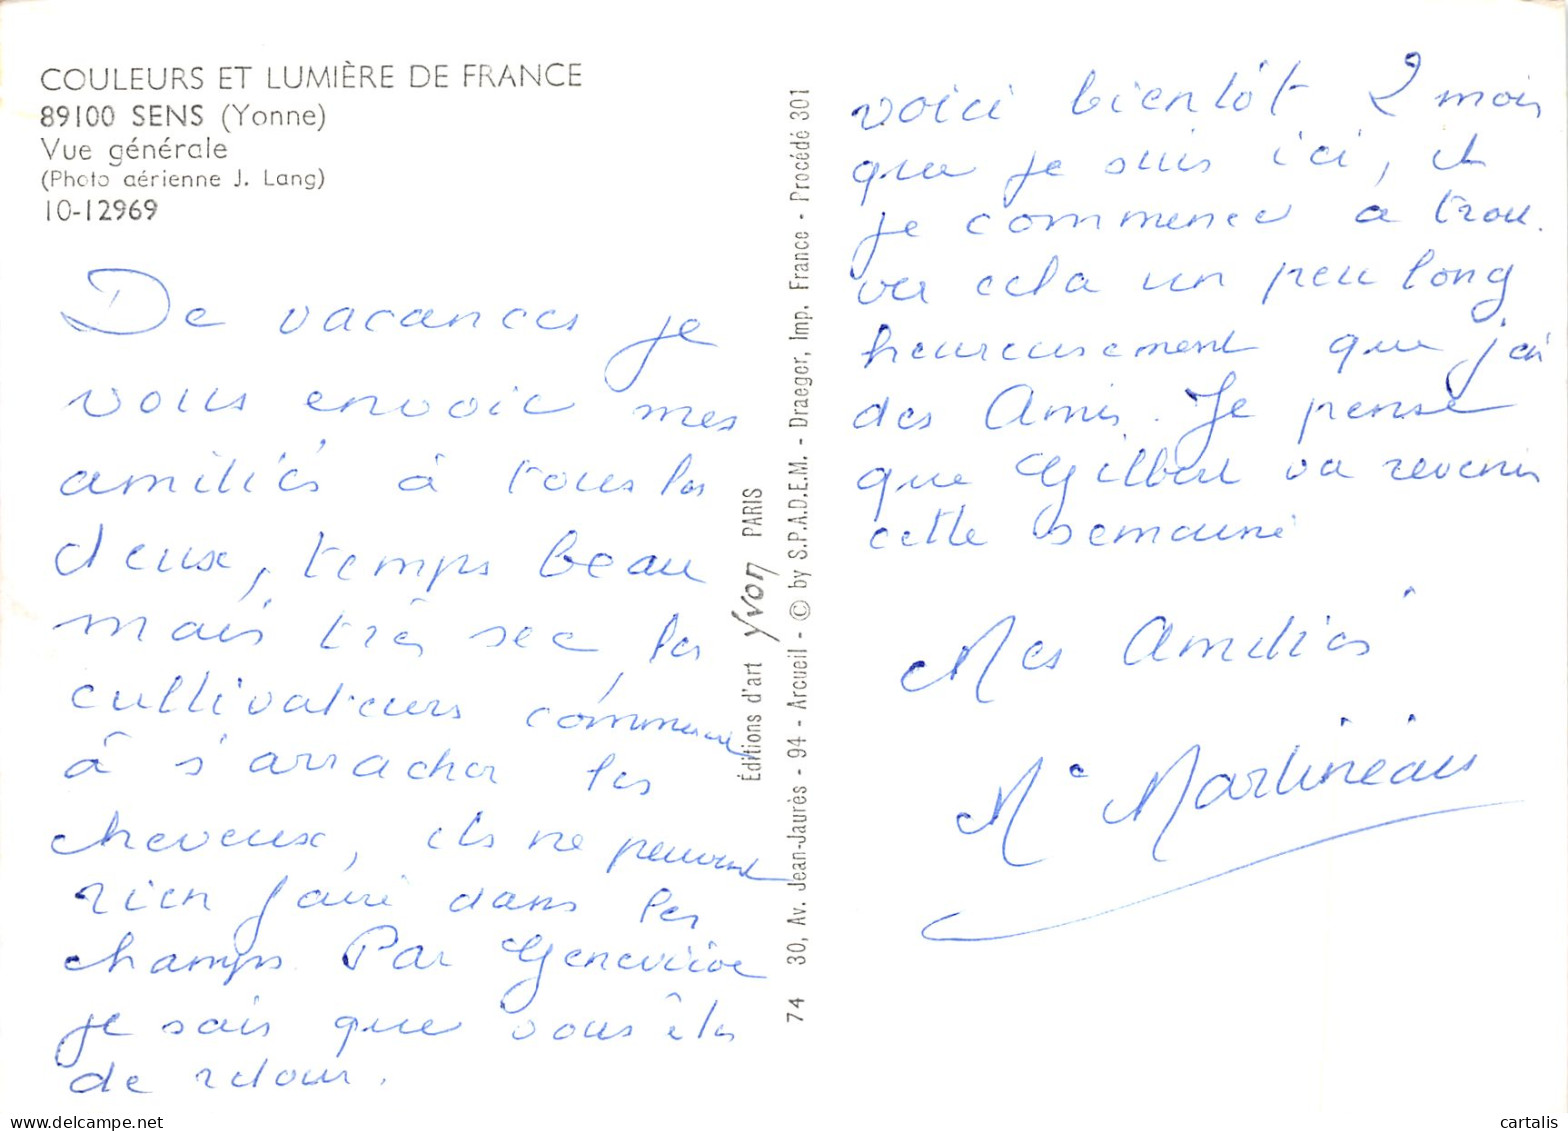 COULEURS ET LUMIÈRE DE FRANCE
89100 SENS (Yonne)
Vue générale
(Photo aérienne J. Lang)
10-12969
De vacances je
vous envoie mes
amitiés à tous les
deux, temps beau
mais très sec, les
cultivateurs commence
à s'arracher les
cheveux, ils ne peuvent
rien faire dans les
champs. Par Geneviève
je sais que vous êtes
de retour.
Éditions d'art Yvon PARIS
74 30, Av. Jean-Jaurès - 94 - Arcueil - © by S.P.A.D.E.M. - Draeger, Imp. France - Procédé 301
voici bientôt 2 mois
que je suis ici, et
je commence a trou.
ver cela un peu long
heureusement que j'ai
des Amis. Je pense
que Gilbert va revenir
cette semaine
Mes Amitiés
Me Martineau
cartalis